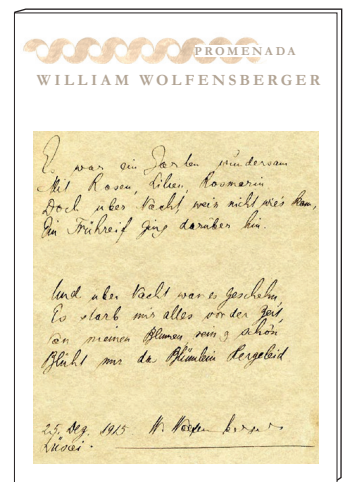 PROMENADA
WILLIAM WOLFENSBERGER
Es war ein Garten wundersam
Mit Rosen, Lilien, Rosmarin
Doch über Nacht weiss nicht wie's kam,
Ein Frühreif ging darüber hin.
Und über Nacht war es geschehn,
Es starb mir alles vor der Zeit,
an meinen Blumen schön
Blüht mir das Blümlein Hergeleid
25. Dez. 1915 W. Wolfensberger